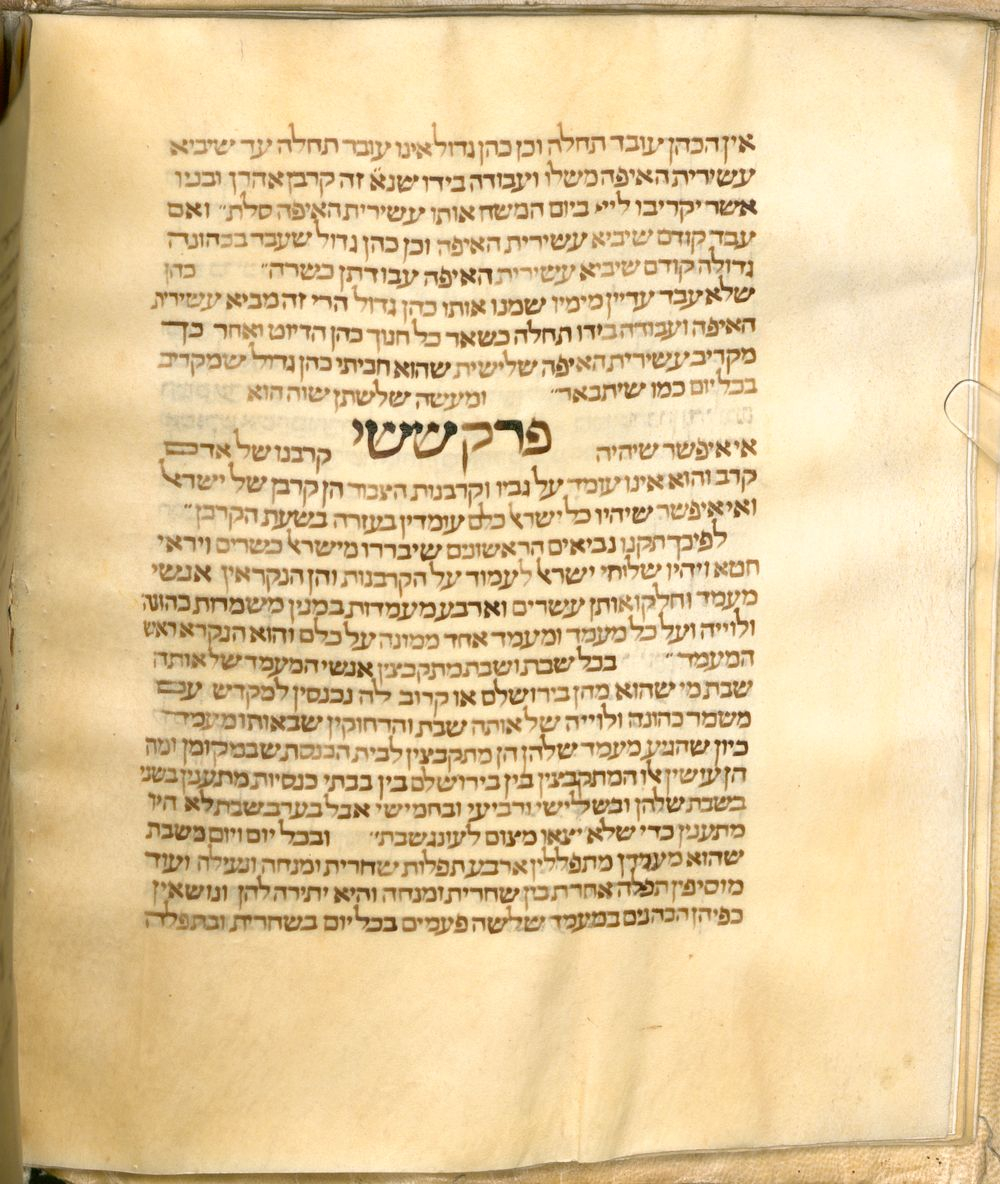 אין הכהן עובד תחלה וכן כהן גדול אינו עובד תחלה עד שיביא
עשירית האיפה משלו ועבודה בידו שנא׳ זה קרבן אהרן ובניו
אשר יקריבו ליי׳ ביום המשח אותו עשירית האיפה סלת״ ואם
עבד קודם שיביא עשירית האיפה וכן כהן גדול שעבד בכהונה
גדולה קודם שיביא עשירית האיפה עבודתן כשרה״ כהן
שלא עבד עדיין מימיו שמנו אותו כהן גדול הרי זה מביא עשירית
האיפה ועבודה בידו תחלה כשאר כל חנוך כהן הדיוט ואחר כך
מקריב עשירית האיפה שלישית שהוא חביתי כהן גדול שמקריב
בכל יום כמו שיתבאר״ ומעשה שלשתן שוה הוא
פרק ששי
אי איפשר שיהיה קרבנו של אדם
קרב והוא אינו עומד על גביו וקרבנות הצבור הן קרבן של ישראל
ואי איפשר שיהיו כל ישראל כלם עומדין בעזרה בשעת הקרבן״
לפיכך תקנו נביאים הראשונים שיבררו מישראל כשרים ויראי
חטא ויהיו שלוחי ישראל לעמוד על הקרבנות והן הנקראין אנשי
מעמד וחלקו אותן עשרים וארבע מעמדות במנין משמרות כהונה
ולוייה ועל כל מעמד ומעמד אחד ממונה על כלם והוא הנקרא ראש
המעמד״ בכל שבת ושבת מתקבצין אנשי המעמד של אותה
שבת מי שהוא מהן בירושלם או קרוב לה נכנסין למקדש עם
משמר כהונה ולוייה של אותה שבת והרחוקין שבאותו מעמד
כיון שהגיע מעמד שלהן הן מתקבצין לבית הכנסת שבמקומן ומה
הן עושין אלו המתקבצין בין בירושלם בין בבתי כנסיות מתענין בשני
בשבת שלהן ובשלישי וברביעי ובחמישי אבל בערב שבת לא היו
מתענין כדי שלא יצאו מצום לעונג שבת״ ובכל יום ויום משבת
שהוא מעמדן מתפללין ארבע תפלות שחרית ומנחה ונעילה ועוד
מוסיפין תפלה אחרת בין שחרית ומנחה והיא יתירה להן ונושאין
כפיהן הכהנים במעמד שלשה פעמים בכל יום בשחרית ובתפלה